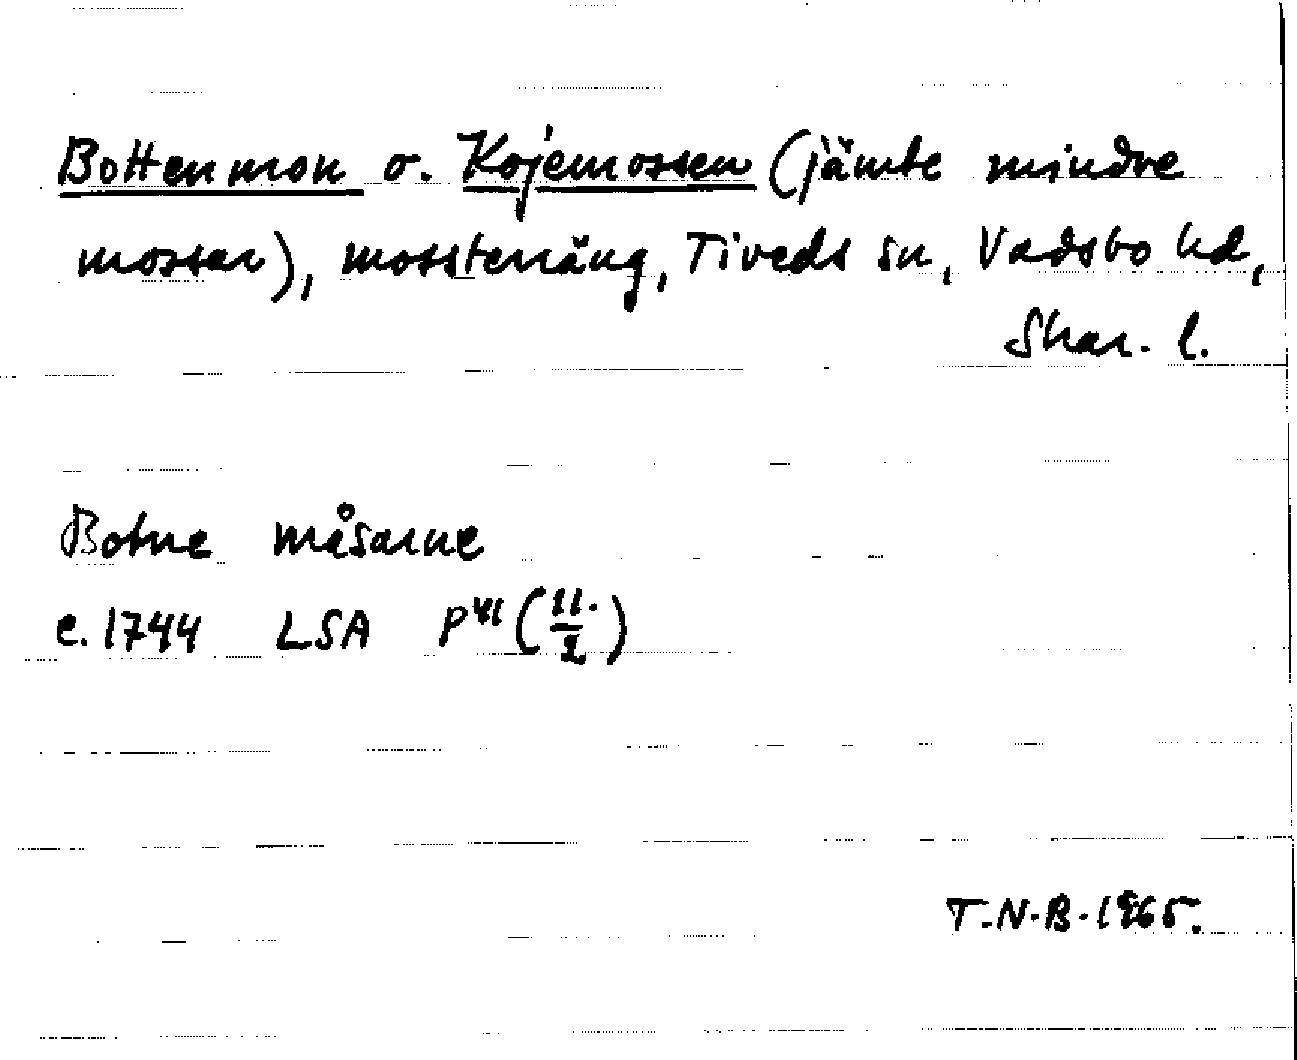 Bottenmon o. Kojemossen (jämte mindre
mossar), mossterräng, Tiveds sn, Vadsbo hd,
Skar. l.
Botne måsarne
c. 1744 LSA P41 (11./2)
T.N.B. 1965.